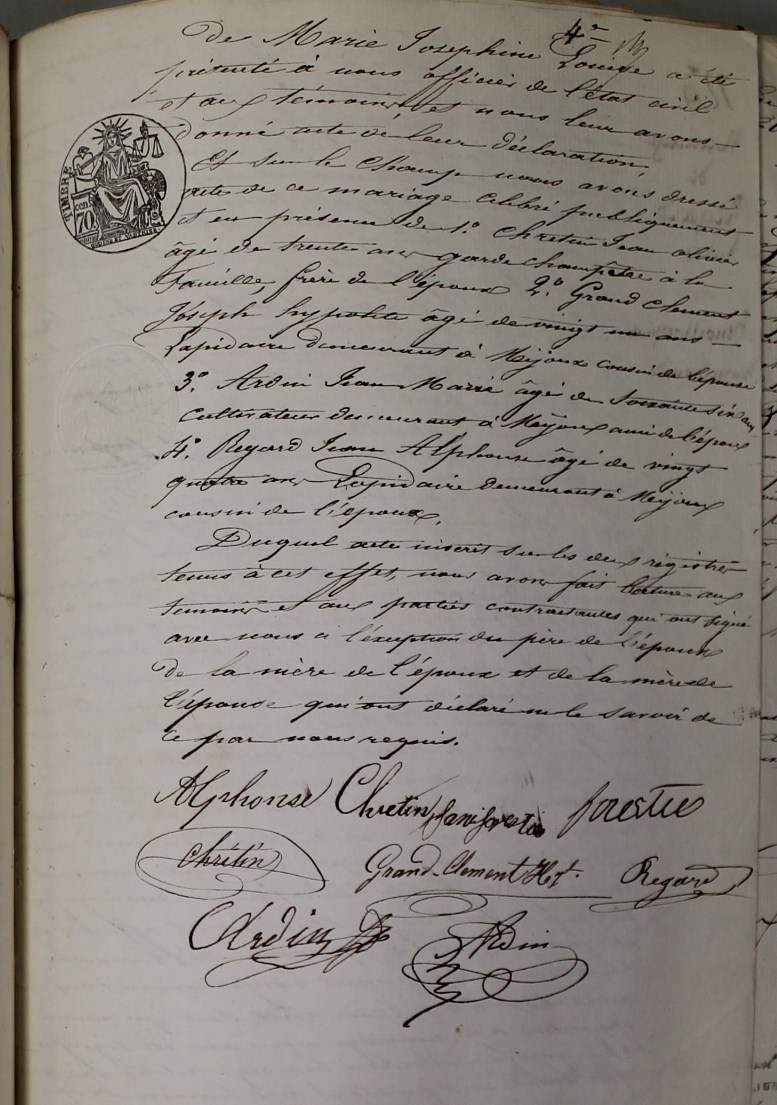 4e
de Marie Josephine Louise a été
présenté à nous officier de l'état civil
et aux témoins et nous leur avons
donné acte de leur déclaration,
Et sur le champ nous avons dressé
acte de ce mariage célébré publiquement
et en présence de 1.° Chretin Jean olivier
âgé de trente ans garde champêtre à la
Faucille, frère de l'époux 2.° Grand Clement
Joseph hypolite âgé de vingt un ans
Lapidaire demeurant à Mijoux cousin de l'épouse
3.° Ardin Jean Marie âgé de soixante six ans
cultivateur demeurant à Mijoux ami de l'époux
4.° Regard Jean Alphonse âgé de vingt
quatre ans Lapidaire demeurant à Mijoux
cousin de l'époux,
Duquel acte inscrit sur les deux régistres
tenus à cet effet, nous avons fait lecture aux
temoins et aux parties contractantes qui ont signé
avec nous à l'éxception du père de l'époux
de la mère de l'époux et de la mère de
l'épouse qui ont déclaré ne le savoir de
ce par nous requis.
Alphonse Chretin forestier
Chrétin Grand-Clement Hte. Regard
Ardin Ardin
TIMBRE
70